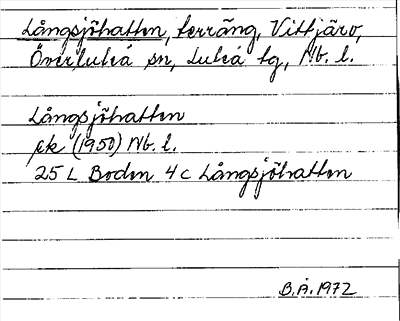 Långsjöhatten, terräng, Vittjärv,
Överluleå sn, Luleå tg, Nb. l.
Långsjöhatten
ek (1950) Nb. l.
25 L Boden 4 c Långsjöhatten
B.Å. 1972